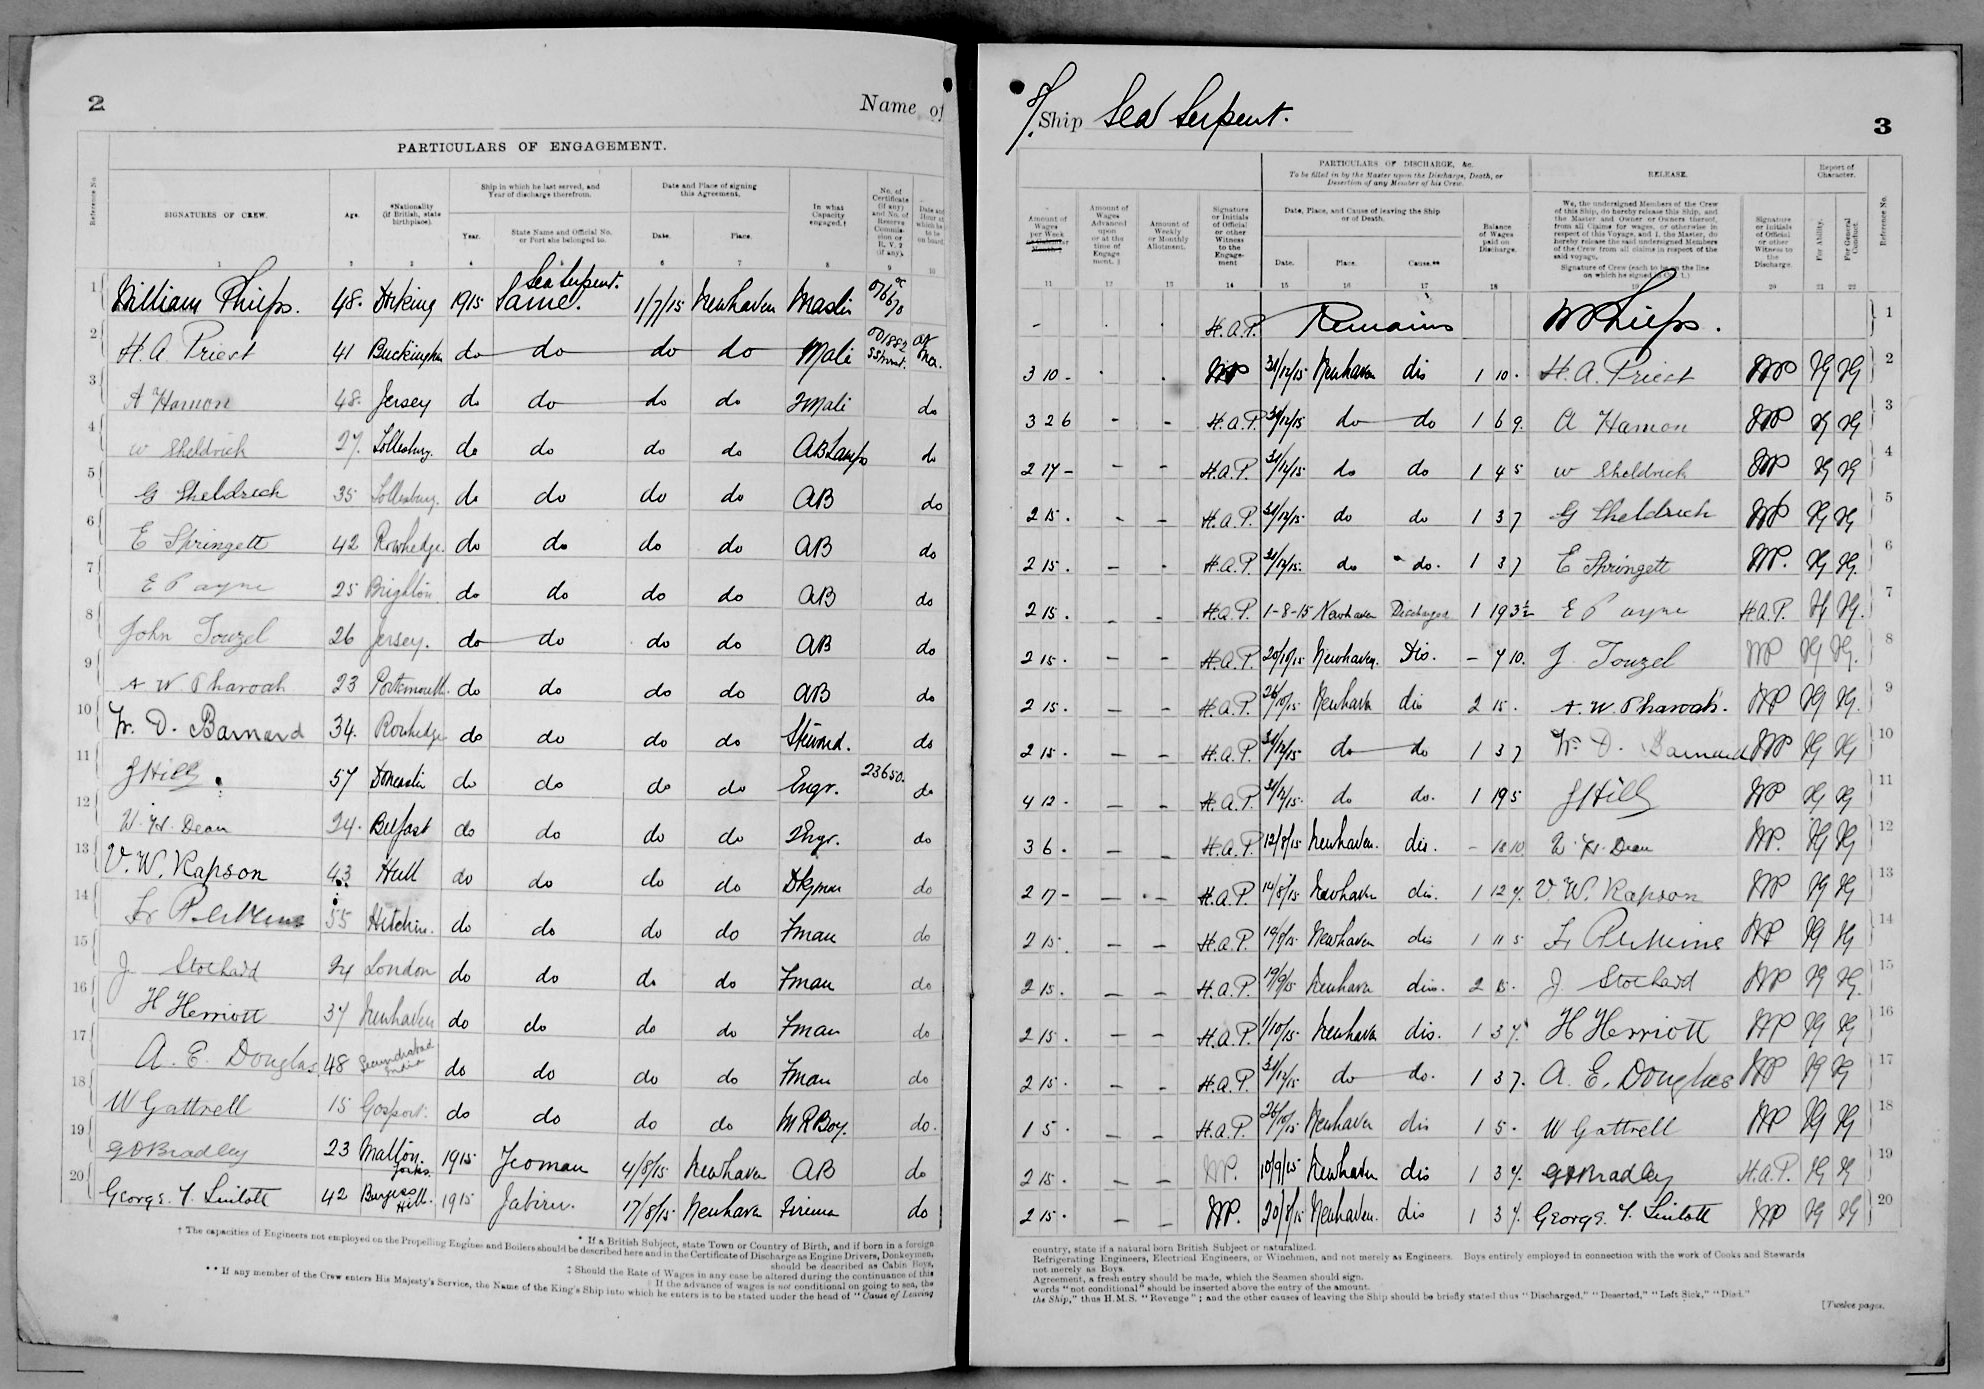 2 Name of
PARTICULARS OF ENGAGEMENT.
Reference No. SIGNATURES OF CREW. Age. *Nationality (if British, state birthplace). Ship in which he last served, and Year of discharge therefrom. Year. State Name and Official No. or Port she belonged to. Date and Place of signing this Agreement. Date. Place. In what Capacity engaged.† No. of Certificate (if any) and No. of Reserve Commission or R.V.2 (if any).
1 2 3 4 6 7 8 9 10
1 William Phieps. 48. Dorking 1915 Sea Serpent. Same. 1/7/15 Newhaven
2 H. A. Priest 41 Buckingham do do do do Mate
3 A Hamon 48. Jersey do do do do 2Mate do
4 W Sheldrick 27. Tollesbury. do do do do AB Lamps do
5 G Sheldrick 35 Tollesbury. do do do do AB do
6 E Springett 42 Rowhedge. do do do do AB do
7 E Payne 25 Brighton do do do do AB do
8 John Touzel 26 Jersey. do do do do AB do
9 A W Pharoah 23 Portsmouth. do do do do AB do
10 W. D. Barnard 34. Rowhedge do do do do Steward. do
11 J Hills 57 Doncaster do do do do Engr. 23650. do
12 W. H. Dean 24. Belfast do do do do 2Engr. do
13 V. W. Rapson 43 Hull do do do do Dkyman do
14 Fr Perkins 55 Hitchin. do do do do Fman do
15 J Stochard 24 London do do do do Fman do
16 H Herriott 37 Newhaven do do do do Fman do
17 A. E. Douglas 48 Secundrabad India do do do do Fman do
18 W Gattrell 15 Gosport. do do do do M R Boy. do.
19 G O Bradley 23 Malton. Yorks 1915 Yeoman 4/8/15 Newhaven AB do
20 George T. Lintott 42 Burgess Hill. 1915 Jabiru. 17/8/15 Newhaven Fireman do
* If a British Subject, state Town or Country of Birth, and if born in a foreign
† The capacities of Engineers not employed on the Propelling Engines and Boilers should be described here and in the Certificate of Discharge as Engine Drivers, Donkeymen,
should be described as Cabin Boys,
‡ Should the Rate of Wages in any case be altered during the continuance of this
If the advance of wages is not conditional on going to sea, the
** If any member of the Crew enters His Majesty's Service, the Name of the King's Ship into which he enters is to be stated under the head of "Cause of Leaving
S/. Ship Sea Serpent. 3
PARTICULARS OF DISCHARGE, &c.
To be filled in by the Master upon the Discharge, Death, or Desertion of any Member of his Crew.
RELEASE. Report of Character.
Amount of Wages per Week Amount of Wages Advanced upon or at the time of Engagement. Amount of Weekly or Monthly Allotment. Signature or Initials of Official or other Witness to the Engagement Date, Place, and Cause of leaving the Ship or of Death. Date. Place. Cause.** Balance of Wages paid on Discharge.
We, the undersigned Members of the Crew of this Ship, do hereby release this Ship, and the Master and Owner or Owners thereof, from all Claims for wages, or otherwise in respect of this Voyage, and I, the Master, do hereby release the said undersigned Members of the Crew from all claims in respect of the said voyage.
Signature of Crew (each to be on the line on which he signed in Col. 1.)
Signature or Initials of Official or other Witness to the Discharge. For Ability. For General Conduct. Reference No.
11 12 13 14 15 16 17 18 19 20 21 22
- H.A.P. Remains W Phieps. 1
3 10 - WP 31/12/15 Newhaven dis 1 10 - H. A. Priest WP VG VG 2
3 2 6 - - H.A.P. 31/12/15 do do 1 6 9 A Hamon WP VG VG 3
2 17 - - - H.A.P. 31/12/15 do do 1 4 5 W Sheldrick WP VG VG 4
2 15 - - - H.A.P. 31/12/15 do do 1 3 7 G Sheldrick WP VG VG 5
2 15 - - - H.A.P. 31/12/15 do do. 1 3 7 E Springett WP. VG VG. 6
2 15 - - - H.A.P. 1-8-15 Newhaven Discharged 1 19 3½ E Payne H.A.P. VG VG. 7
2 15 - - - H.A.P. 20/10/15 Newhaven. Dis. - 7 10. J Touzel WP VG VG. 8
2 15 - - - H.A.P. 26/10/15 Newhaven dis 2 15 - A. W. Pharoah. WP VG VG. 9
2 15 - - - H.A.P. 31/12/15 do do 1 3 7 W. D. Barnard WP VG VG 10
4 12 - - - H.A.P. 31/12/15 do do. 1 19 5 J Hills WP VG VG 11
3 6 - - - H.A.P. 12/8/15 Newhaven. dis. - 18 10 W. H. Dean WP. VG VG 12
2 17 - - - H.A.P. 14/8/15 Newhaven dis. 1 12 7. V. W. Rapson WP VG VG 13
2 15 - - - H.A.P. Newhaven dis 1 11 5 Fr Perkins WP VG VG 14
2 15 - - - H.A.P. 19/9/15 Newhaven dis. 2 15 - J Stochard WP VG VG. 15
2 15 - - - H.A.P. 1/10/15 Newhaven dis. 1 3 7. H Herriott WP VG VG 16
2 15 - - - H.A.P. 31/12/15 do do. 1 3 7. A. E. Douglas WP VG VG 17
1 5 - - - H.A.P. 26/10/15 Newhaven dis 1 5 - W Gattrell WP VG VG 18
2 15 - - - WP. 10/9/15 Newhaven dis 1 3 7. G O Bradley H.A.P. VG VG 19
2 15 - - - WP. 20/8/15 Newhaven. dis 1 3 7. George T. Lintott WP VG VG 20
country, state if a natural born British Subject or naturalized.
Refrigerating Engineers, Electrical Engineers, or Winchmen, and not merely as Engineers. Boys entirely employed in connection with the work of Cooks and Stewards
not merely as Boys.
Agreement, a fresh entry should be made, which the Seamen should sign.
words "not conditional" should be inserted above the entry of the amount.
the Ship," thus H.M.S. "Revenge"; and the other causes of leaving the Ship should be briefly stated thus "Discharged," "Deserted," "Left Sick," "Died."
[Twelve pages.